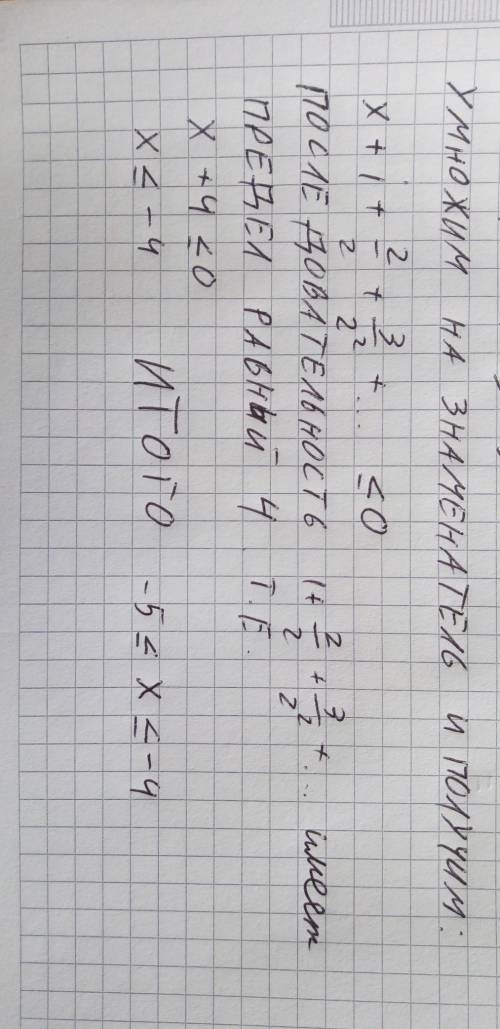 УМНОЖИМ НА ЗНАМЕНАТЕЛЬ И ПОЛУЧИМ:
x + 1 + 2/2 + 3/2² + ... ≤ 0
ПОСЛЕДОВАТЕЛЬНОСТЬ 1 + 2/2 + 3/2² + ... имеет
ПРЕДЕЛ РАВНЫЙ 4. Т.Е.
x + 4 ≤ 0
x ≤ -4 ИТОГО -5 ≤ x ≤ -4